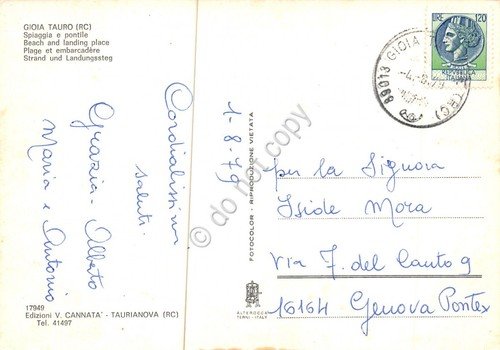 GIOIA TAURO (RC)
Spiaggia e pontile
Beach and landing place
Plage et embarcadère
Strand und Landungssteg
Cordialissimi
saluti
Grazia - Alberto
Maria e Antonio
1-8-79
17949
Edizioni V. CANNATA' - TAURIANOVA (RC)
Tel. 41497
FOTOCOLOR - RIPRODUZIONE VIETATA
ALTEROCCA
TERNI - ITALY
LIRE 120
89013 GIOIA
(RC)
per la Signora
Iside Mora
via F. del Canto 9
16164 Genova Pontex
© do not copy